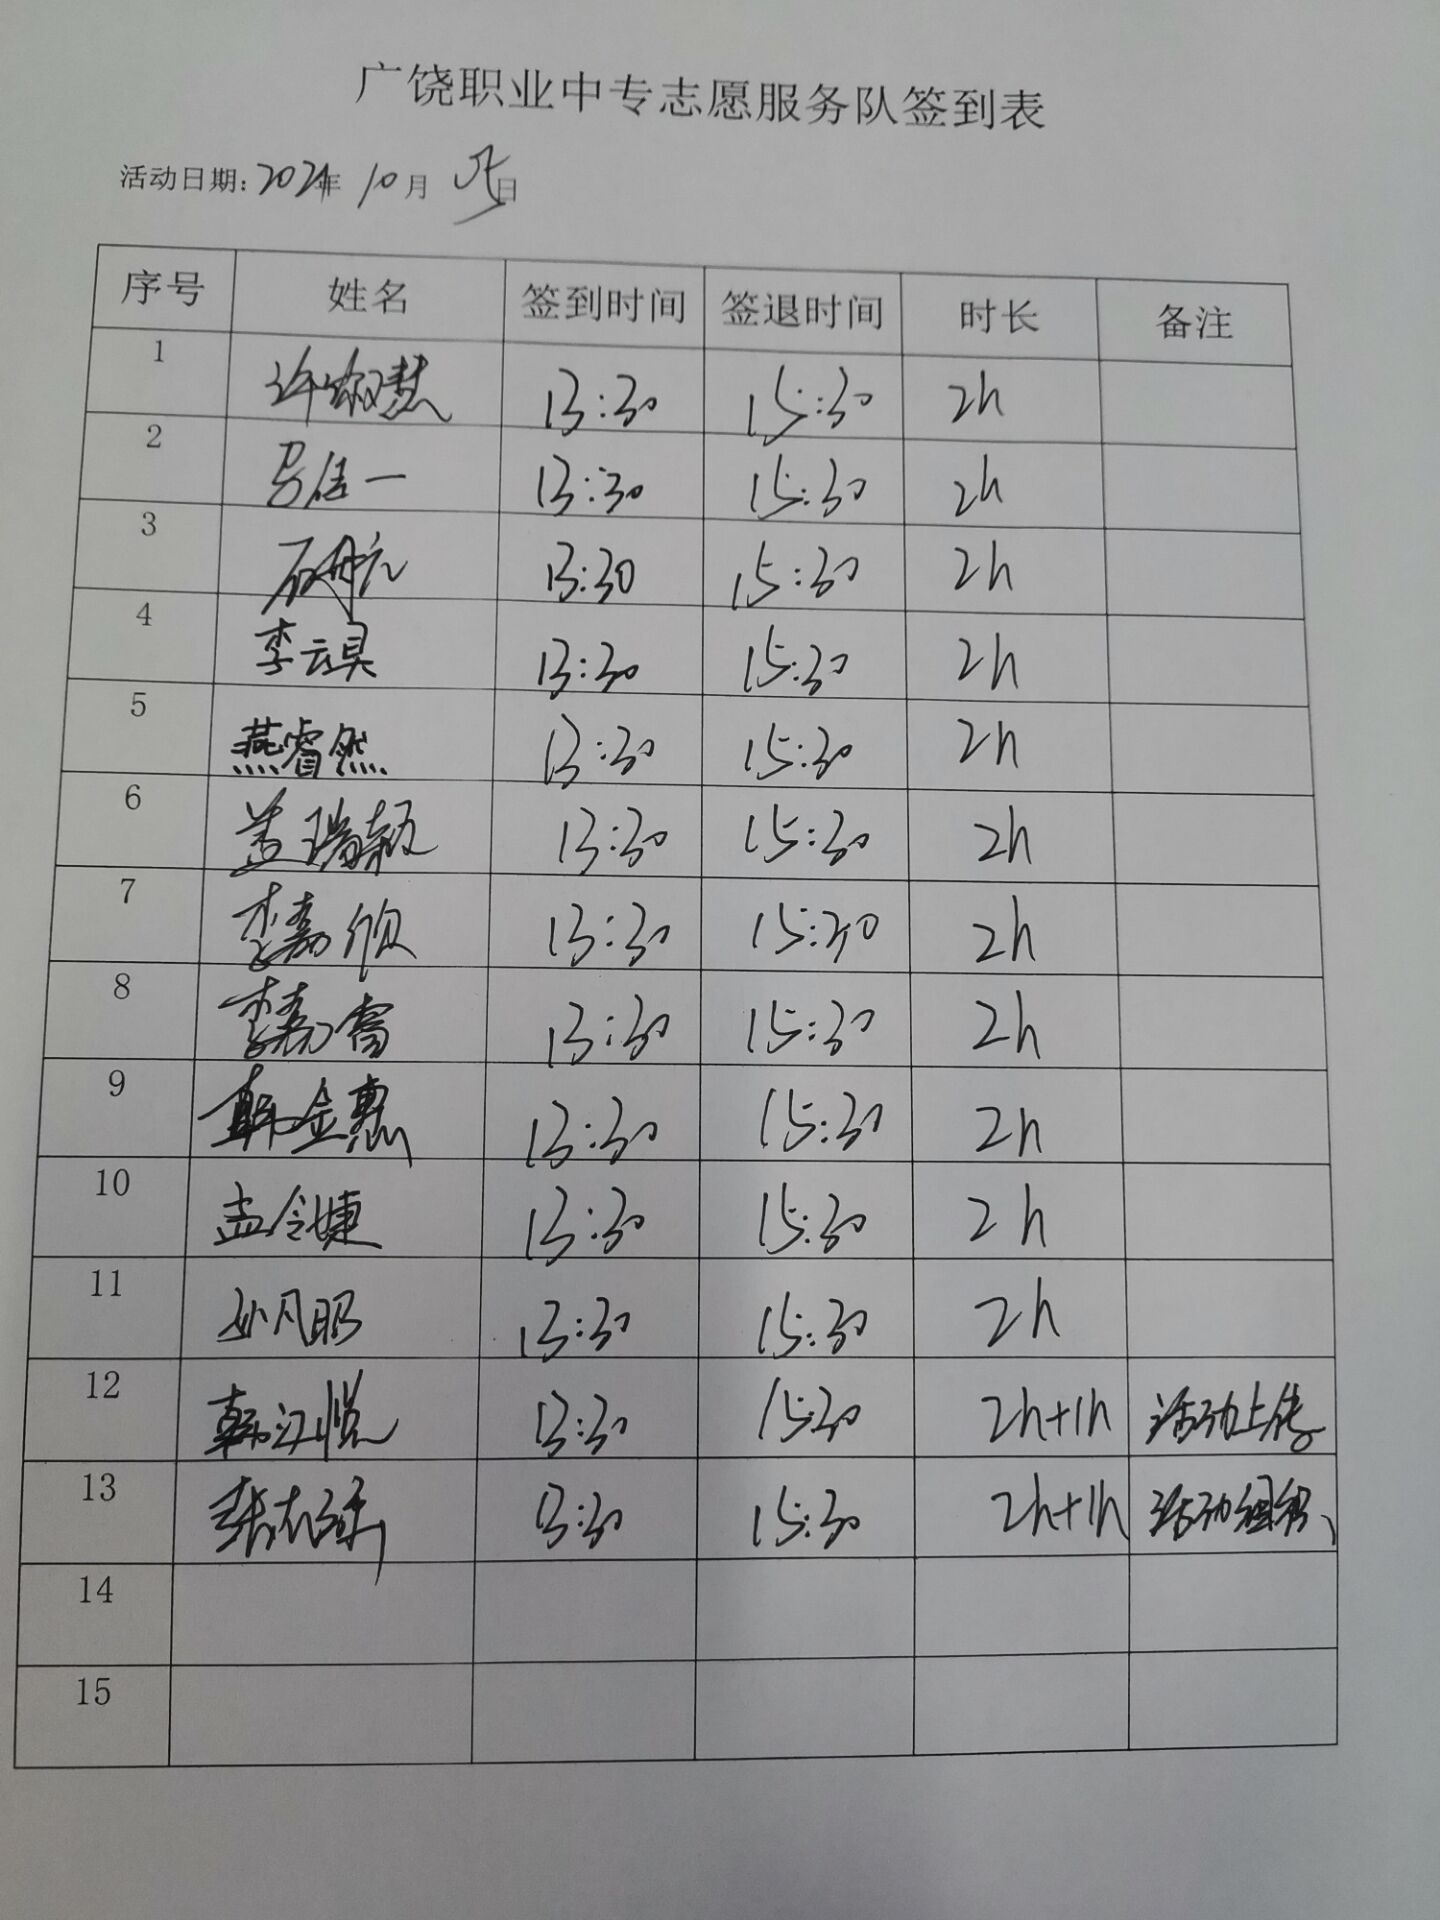 广饶职业中专志愿服务队签到表
活动日期：202年 10月 日
序号 姓名 签到时间 签退时间 时长 备注
1 许淑慧 13:30 15:30 2h
2 马佳一 13:30 15:30 2h
3 13:30 15:30 2h
4 李云昊 13:30 15:30 2h
5 燕睿然 13:30 15:30 2h
6 盖瑞颖 13:30 15:30 2h
7 李嘉欣 13:30 15:30 2h
8 李嘉 13:30 15:30 2h
9 韩金惠 13:30 15:30 2h
10 孟令婕 13:30 15:30 2h
11 孙凡昭 13:30 15:30 2h
12 韩江悦 13:30 15:30 2h+1h 活动上传
13 13:30 15:30 2h+1h 活动组织、
14
15